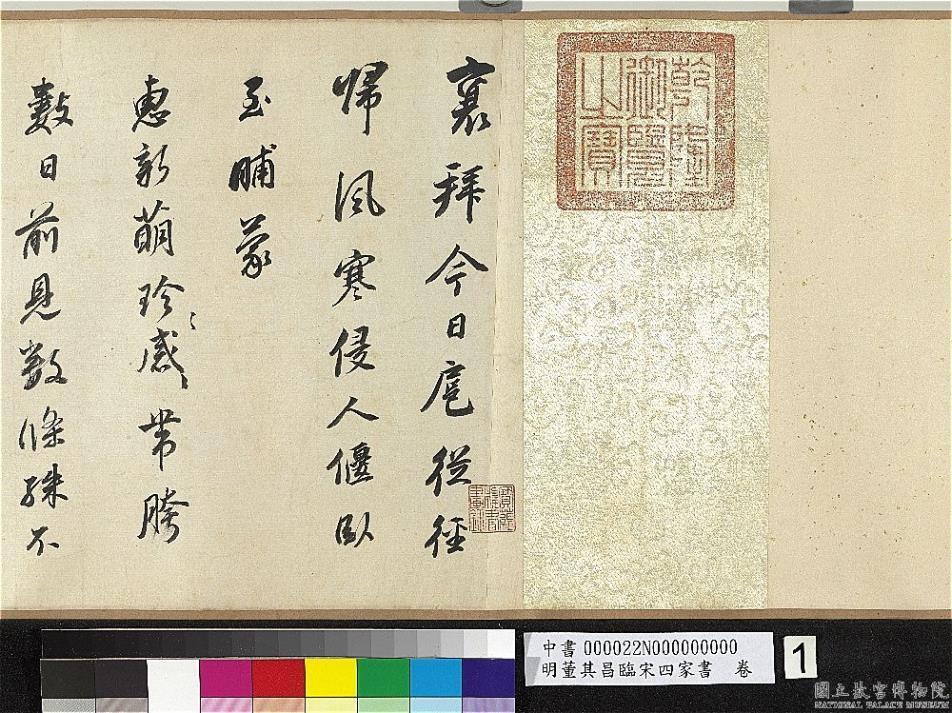 乾隆
御覽
之寶
襄拜今日扈從徑
歸風寒侵人偃臥
至晡蒙
惠新萌珍感珍感帶胯
數日前見數條殊不
中書 000022N000000000
明董其昌臨宋四家書 卷
1
國立故宮博物院
NATIONAL PALACE MUSEUM